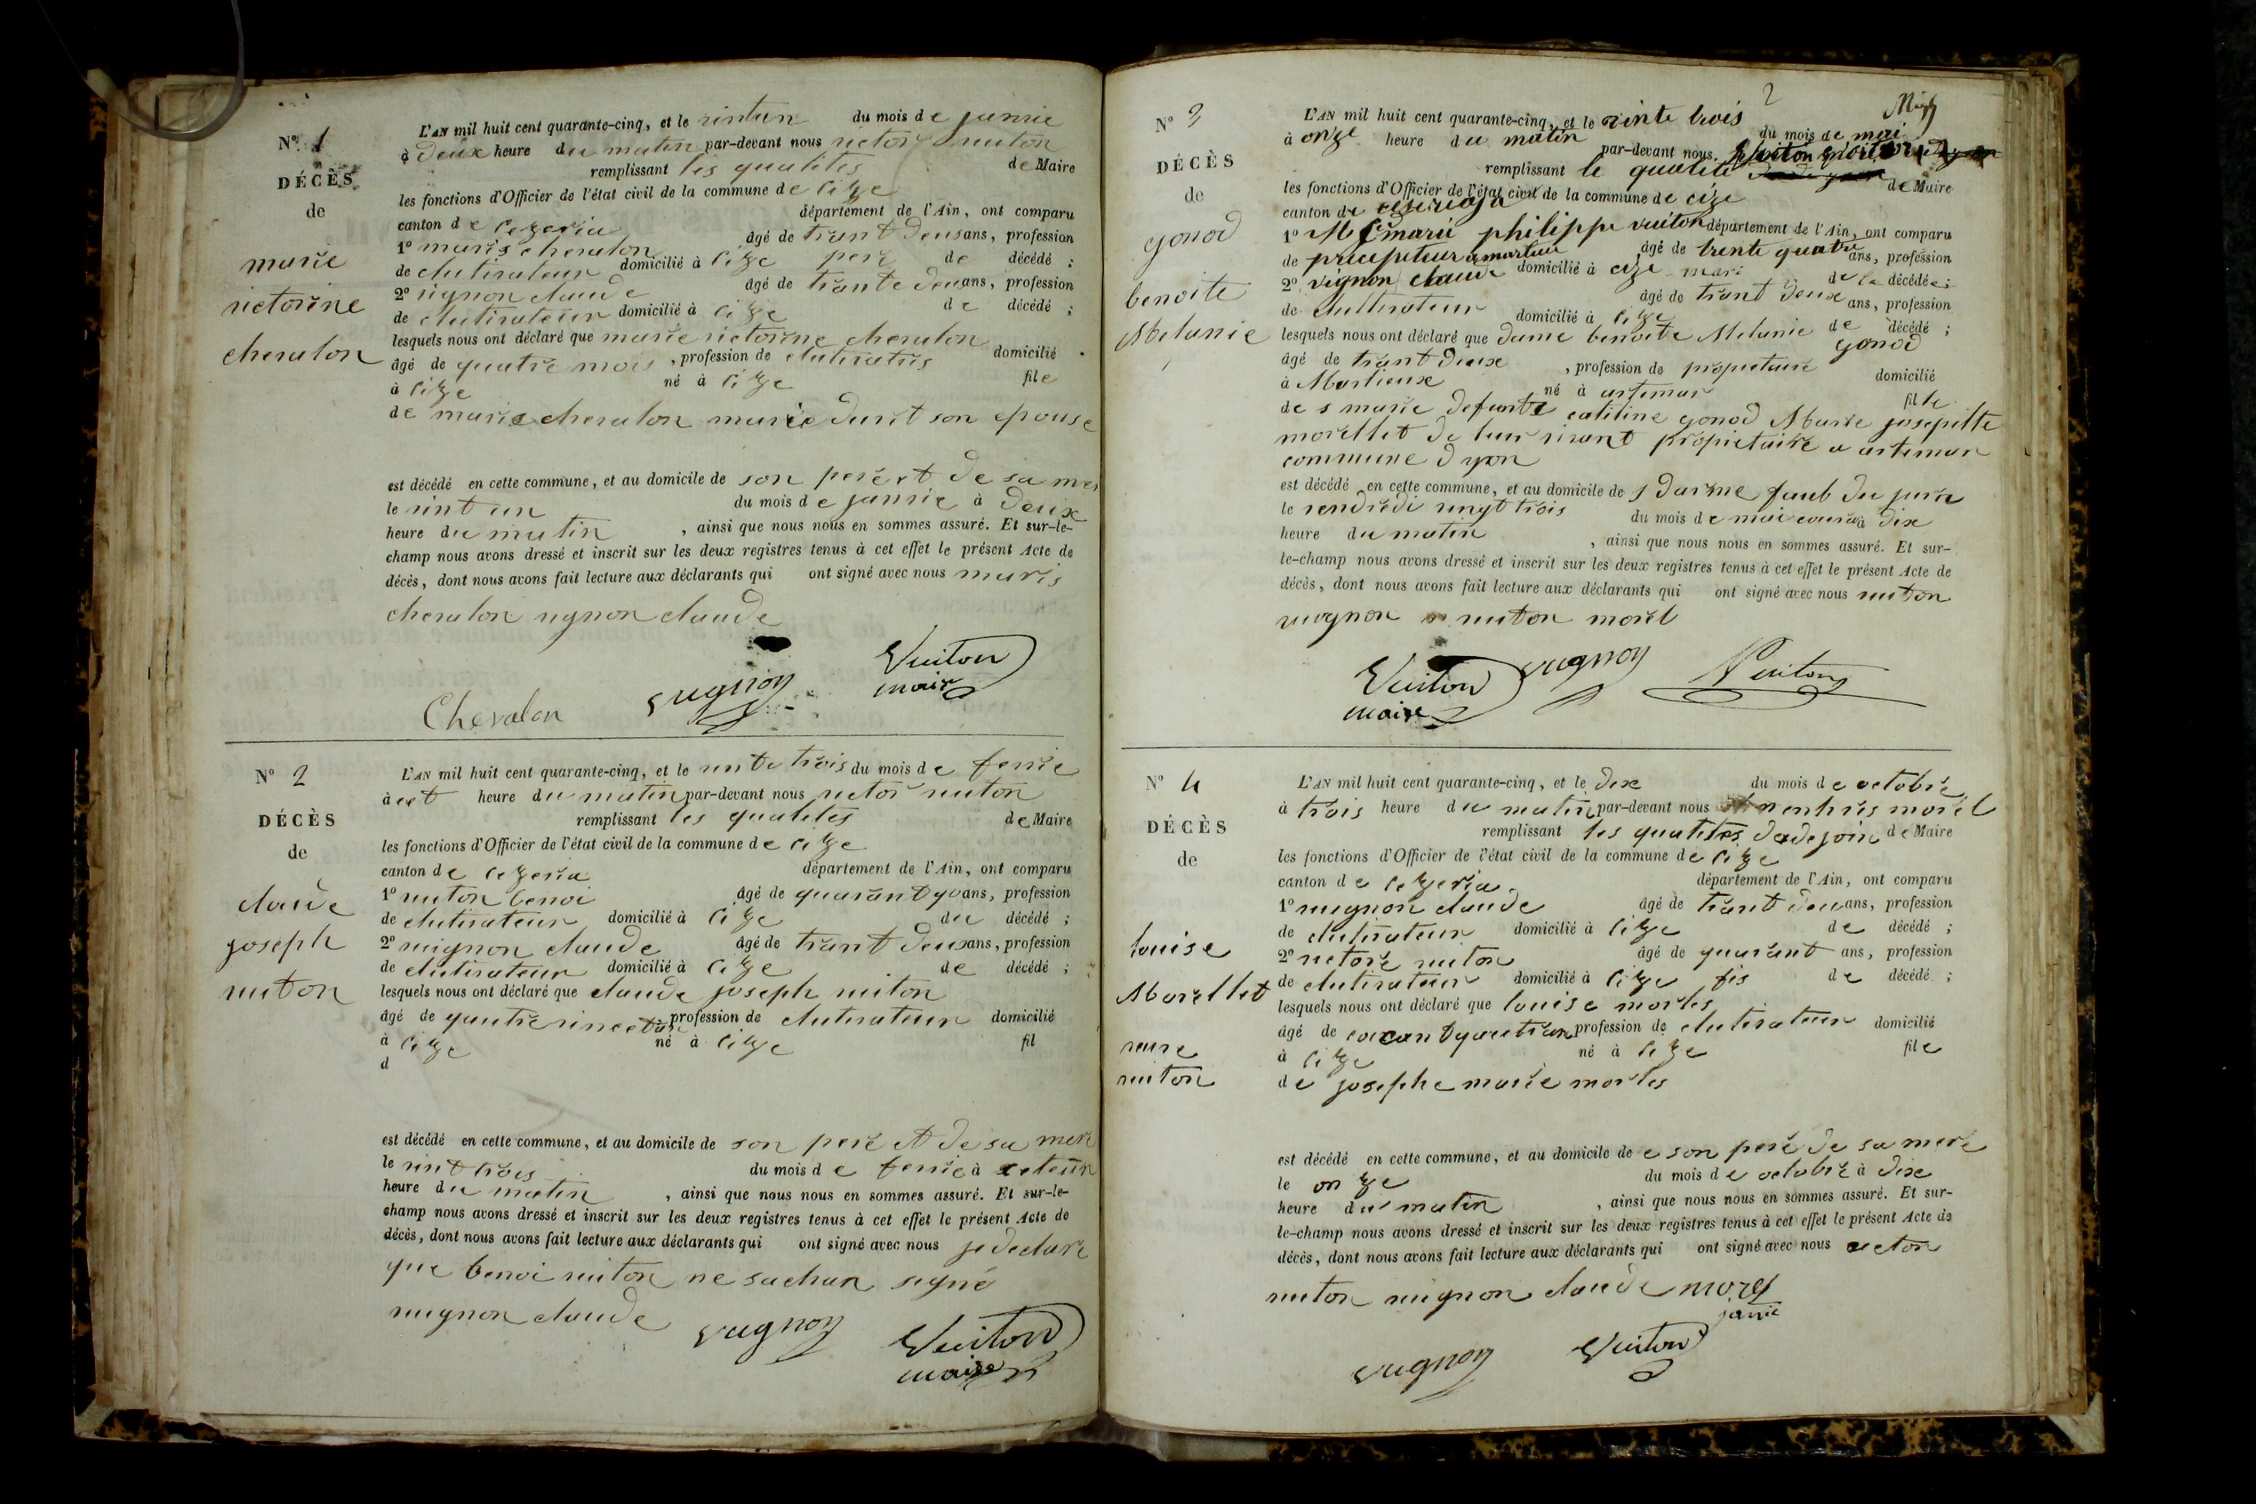 N° 1
DÉCÈS
de
marie
victorine
chevalon
L'AN mil huit cent quarante-cinq, et le vintun du mois de janvie
à deux heure du matin par-devant nous victor vuiton
remplissant les qualites de Maire
les fonctions d'Officier de l'état civil de la commune de cize
canton de cezeria département de l'Ain, ont comparu
1° maris chevalon âgé de trant deus ans, profession
de clutivateur domicilié à cize pere de décédé ;
2° vignon claude âgé de trante deu ans, profession
de clutivateur domicilié à cize de décédé ;
lesquels nous ont déclaré que marie victorine chevalon
âgé de quatre mois , profession de clutivatris domicilié
à cize né à cize file
de marie chevalon marie duret son epouse
est décédé en cette commune, et au domicile de son pere et de sa mer
le vint un du mois de janvie à deux
heure du matin , ainsi que nous nous en sommes assuré. Et sur-le-
champ nous avons dressé et inscrit sur les deux registres tenus à cet effet le présent Acte de
décès, dont nous avons fait lecture aux déclarants qui ont signé avec nous maris
chevalon vignon claude
Chevalon vugnon Vuiton
maire
N° 2
DÉCÈS
de
claude
joseph
vuiton
L'AN mil huit cent quarante-cinq, et le vinte trois du mois de fevrie
à set heure du matin par-devant nous victor vuiton
remplissant les qualites de Maire
les fonctions d'Officier de l'état civil de la commune de cize
canton de cezeria département de l'Ain, ont comparu
1° vuiton benoi âgé de quarant ans, profession
de clutivateur domicilié à cize du décédé ;
2° vuignon claude âgé de trant deus ans, profession
de clutivateur domicilié à cize de décédé ;
lesquels nous ont déclaré que claude joseph vuiton
âgé de profession de clutivateur domicilié
à cize né à cize fil
d
est décédé en cette commune, et au domicile de son pere et de sa mere
le vint trois du mois de fevrie à
heure du matin , ainsi que nous nous en sommes assuré. Et sur-le-
champ nous avons dressé et inscrit sur les deux registres tenus à cet effet le présent Acte de
décès, dont nous avons fait lecture aux déclarants qui ont signé avec nous je declare
que benoi vuiton ne sachan signé
vuignon claude vugnon Vuiton
maire
N° 3
DÉCÈS
de
gonod
benoite
Melanie
L'AN mil huit cent quarante-cinq, et le vinte trois du mois de mai
à onze heure du matin par-devant nous
remplissant le qualité de Maire
les fonctions d'Officier de l'état civil de la commune de cize
canton de département de l'Ain, ont comparu
1° M marie philippe vuiton âgé de trente quatre ans, profession
de precepteur a martieu domicilié à cize mari de la décédée ;
2° vignon claude âgé de trant deux ans, profession
de clultivateur domicilié à cize de décédé ;
lesquels nous ont déclaré que dame benoite Melanie gonod
âgé de trant deux , profession de propietaire domicilié
à Martieux né à artemar fille
de s marie defunte catiline gonod Marie josephte
morellet de leur vivant propietaire a artemar
commune d yon
est décédé en cette commune, et au domicile de
le vendredi vingt trois du mois de mai à dix
heure du matin , ainsi que nous nous en sommes assuré. Et sur-
le-champ nous avons dressé et inscrit sur les deux registres tenus à cet effet le présent Acte de
décès, dont nous avons fait lecture aux déclarants qui ont signé avec nous vuiton
vuognon vuiton morel
Vuiton vugnon Vuiton
maire
N° 4
DÉCÈS
de
louise
Morellet
veuve
vuiton
L'AN mil huit cent quarante-cinq, et le dix du mois de octobre
à trois heure du matin par-devant nous morel
remplissant les qualites de Maire
les fonctions d'Officier de l'état civil de la commune de cize
canton de cezeria département de l'Ain, ont comparu
1° vuignon claude âgé de trant deu ans, profession
de clutivateur domicilié à cize de décédé ;
2° victore vuiton âgé de quarant ans, profession
de clutivateur domicilié à cize fis de décédé ;
lesquels nous ont déclaré que louise morles
âgé de profession de clutivateur domicilié
à cize né à cize file
de josephe marie morles
est décédé en cette commune, et au domicile de e son pere de sa mere
le onze du mois de octobre à dix
heure du matin , ainsi que nous nous en sommes assuré. Et sur-
le-champ nous avons dressé et inscrit sur les deux registres tenus à cet effet le présent Acte de
décès, dont nous avons fait lecture aux déclarants qui ont signé avec nous victon
vuiton vuignon claude morel
vugnon Vuiton